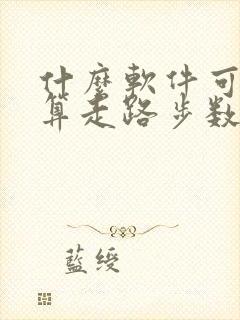 什麽軟件可
算走路步数
藍绶